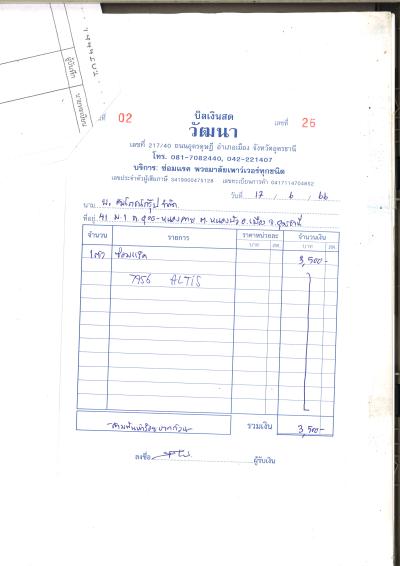 ผู้บันทึก
บิลเงินสด
ที่ 02
วัฒนา
เลขที่ 26
เลขที่ 217/40 ถนนอุดรดุษฎี อำเภอเมือง จังหวัดอุดรธานี
โทร. 081-7082440, 042-221407
บริการ: ซ่อมแรค พวงมาลัยเพาเวอร์ทุกชนิด
เลขประจำตัวผู้เสียภาษี 3419900475128 เลขทะเบียนการค้า 0417114704852
วันที่ 17 / 6 / 66
นาม บ. จำกัด
ที่อยู่ 41 ม.1 ถ.อุดร-หนองคาย ต.หนองบัว อ.เมือง จ.อุดรธานี
จำนวน รายการ ราคาหน่วยละ จำนวนเงิน
บาท สต. บาท สต.
ซ่อมแร็ค 3,500-
7956 ALTIS
-สามพันห้าร้อยบาทถ้วน- รวมเงิน 3,500-
ลงชื่อ ผู้รับเงิน